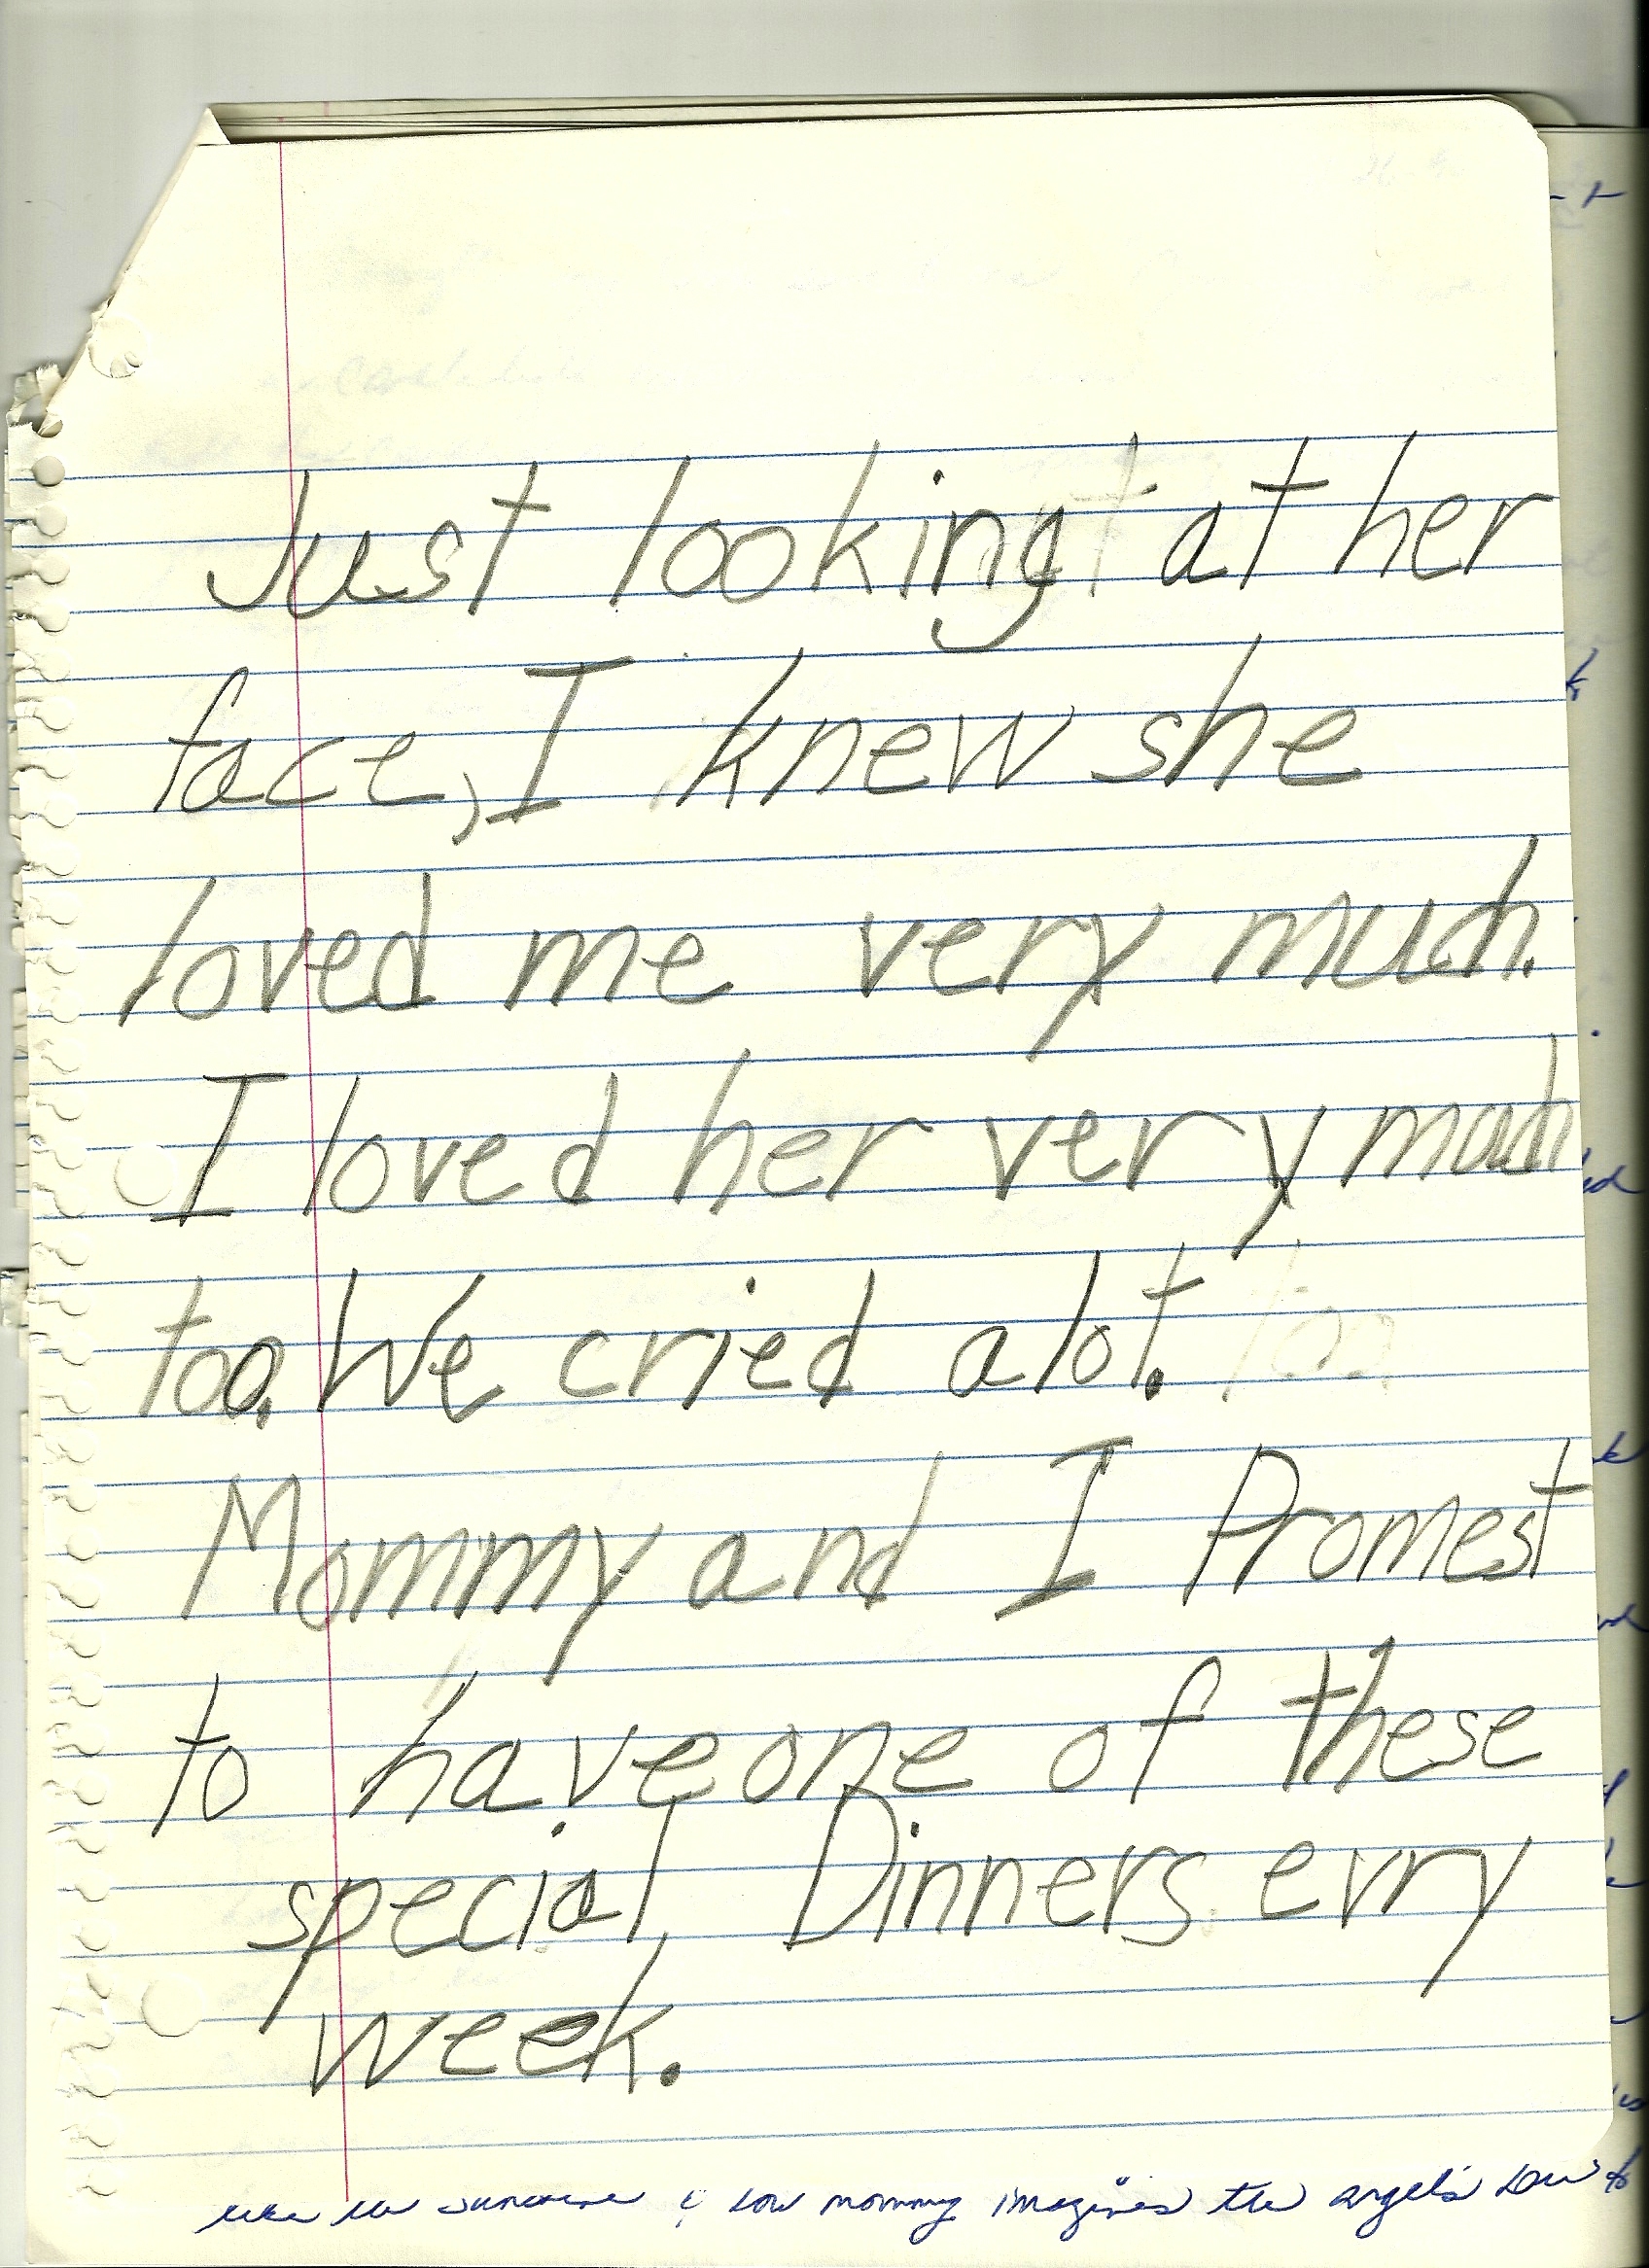 Just looking at her
face, I knew she
loved me very much.
I loved her very much
too. We cried alot.
Mommy and I Promest
to have one of these
special Dinners evry
week.
mommy imagines the angels